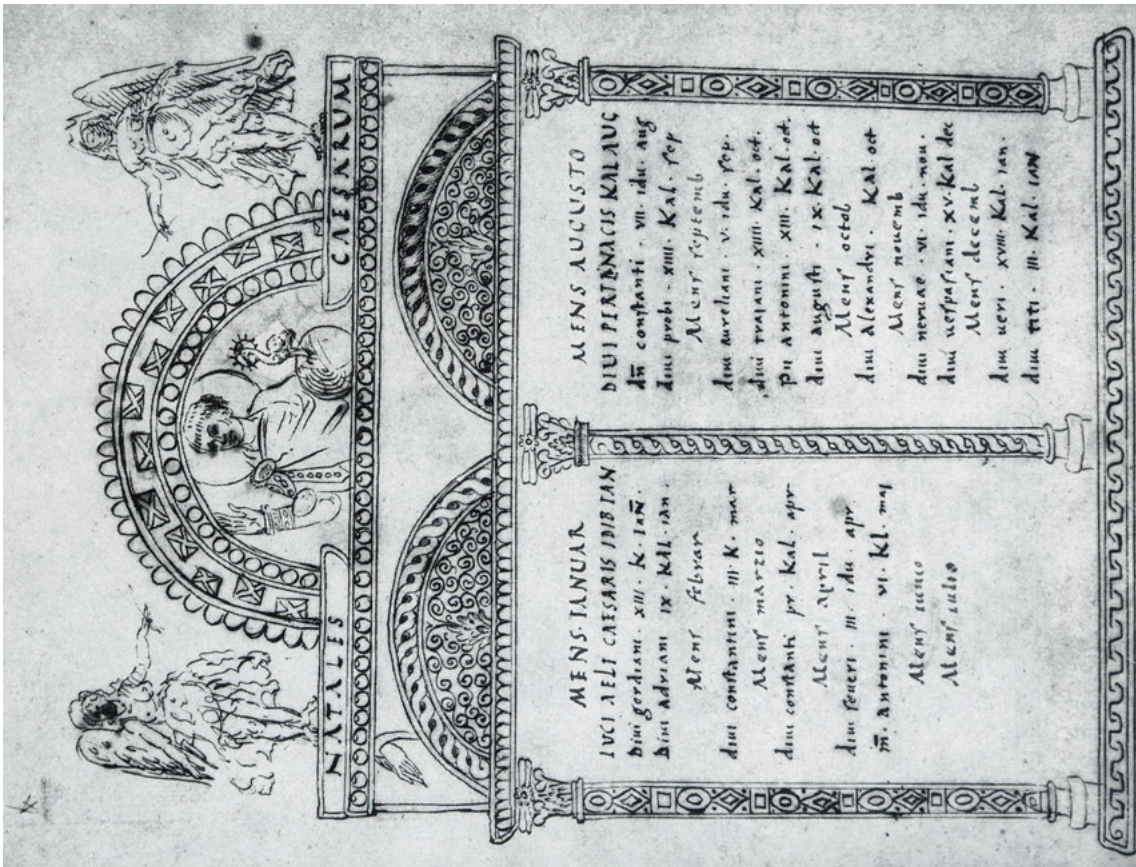 NATALES CAESRRUM
MENS·IANUAR
LUCI AELI CAESARIS IDIB IAN
Diui gordiani · XIII · K · IAN̄
Diui adriani IX KAL · IAN
Mens februar
diui constantini · III · K · mar
Mens marzio
diui constanti pr. Kal. apr.
Mens april
diui seueri · III · idu · apr
m̄. antonini VI · Kl. maj
Mens iunio
Mens iulio
MENS AUGUSTO
DIUI PERTENACIS KAL AUG
dn̄ constanti · VII · idu · aug
diui probi · XIIII · Kal · sep
Mens septemb
diui aureliani · V · idu · sep.
diui traiani · XIIII · Kal · oct.
pii antonini · XIII · Kal · oct.
diui augusti · IX · Kal · oct
Mens octob
diui alexandri · Kal · oct
Mens nouemb
diui neruae · VI · idu · nou.
diui uespasiani · XV · Kal dec
Mens decemb
diui ueri · XVIII · Kal · ian.
diui titi · III · Kal · IAN